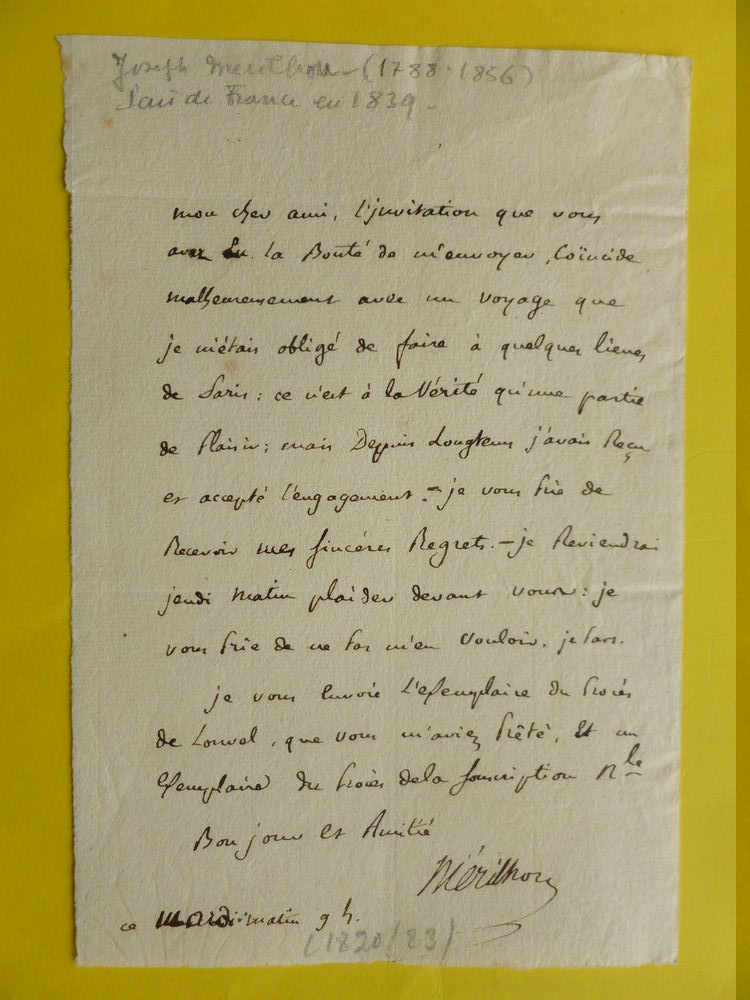 Joseph Merilhou - (1788-1856)
Pair de France en 1839.
mon cher ami, l'invitation que vous
avez Eu la Bonté de m'envoyer, Coïncide
malheureusement avec un voyage que
je m'étais obligé de faire à quelques lieues
de Paris : ce n'est à la Vérité qu'une partie
de Plaisir ; mais Depuis Longtems j'avais Reçu
et accepté l'engagement. - je vous Prie de
Recevoir mes sincéres Regrets. - je Reviendrai
jeudi matin plaider devant vous : je
vous Prie de ne Pas m'en Vouloir. je Pars.
je vous Envoie L'exemplaire du Procès
de Louvel, que vous m'aviez Prêté, Et un
Exemplaire du Procès de la souscription Nle
Bon jour et Amitié
Mérilhou
ce mardi matin 9 h.
(1820/23)